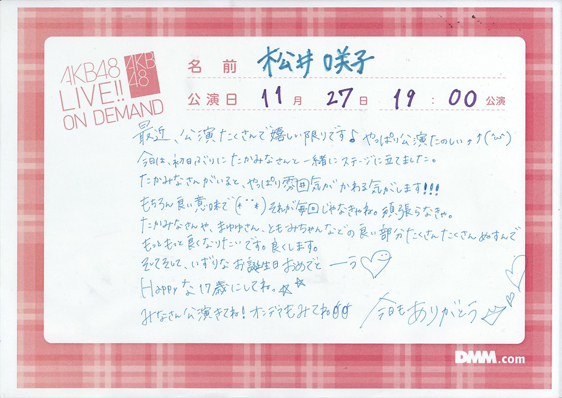 AKB48
LIVE!!
ON DEMAND
AKB
48
名前 松井咲子
公演日 11月 27日 19:00公演
最近、公演たくさんで嬉しい限りです♪ やっぱり公演たのしい
今日は、初日ぶりにたかみなさんと一緒にステージに立てました。
たかみなさんがいると、やっぱり雰囲気がかわる気がします!!!
もちろん良い意味で(*´`*) それが毎回じゃなきゃね。頑張らなきゃ。
たかみなさんや、きゅゆさん、ともみちゃんなどの良い部分たくさんたくさんぬすんで
もっともっと良くなりたいです。良くします。
そしてそして、いずりなお誕生日おめでとーう♡
Happyな17歳にしてね。☆☆
みなさん公演きてね! オンデマもみてね
今日もありがとう
DMM.com